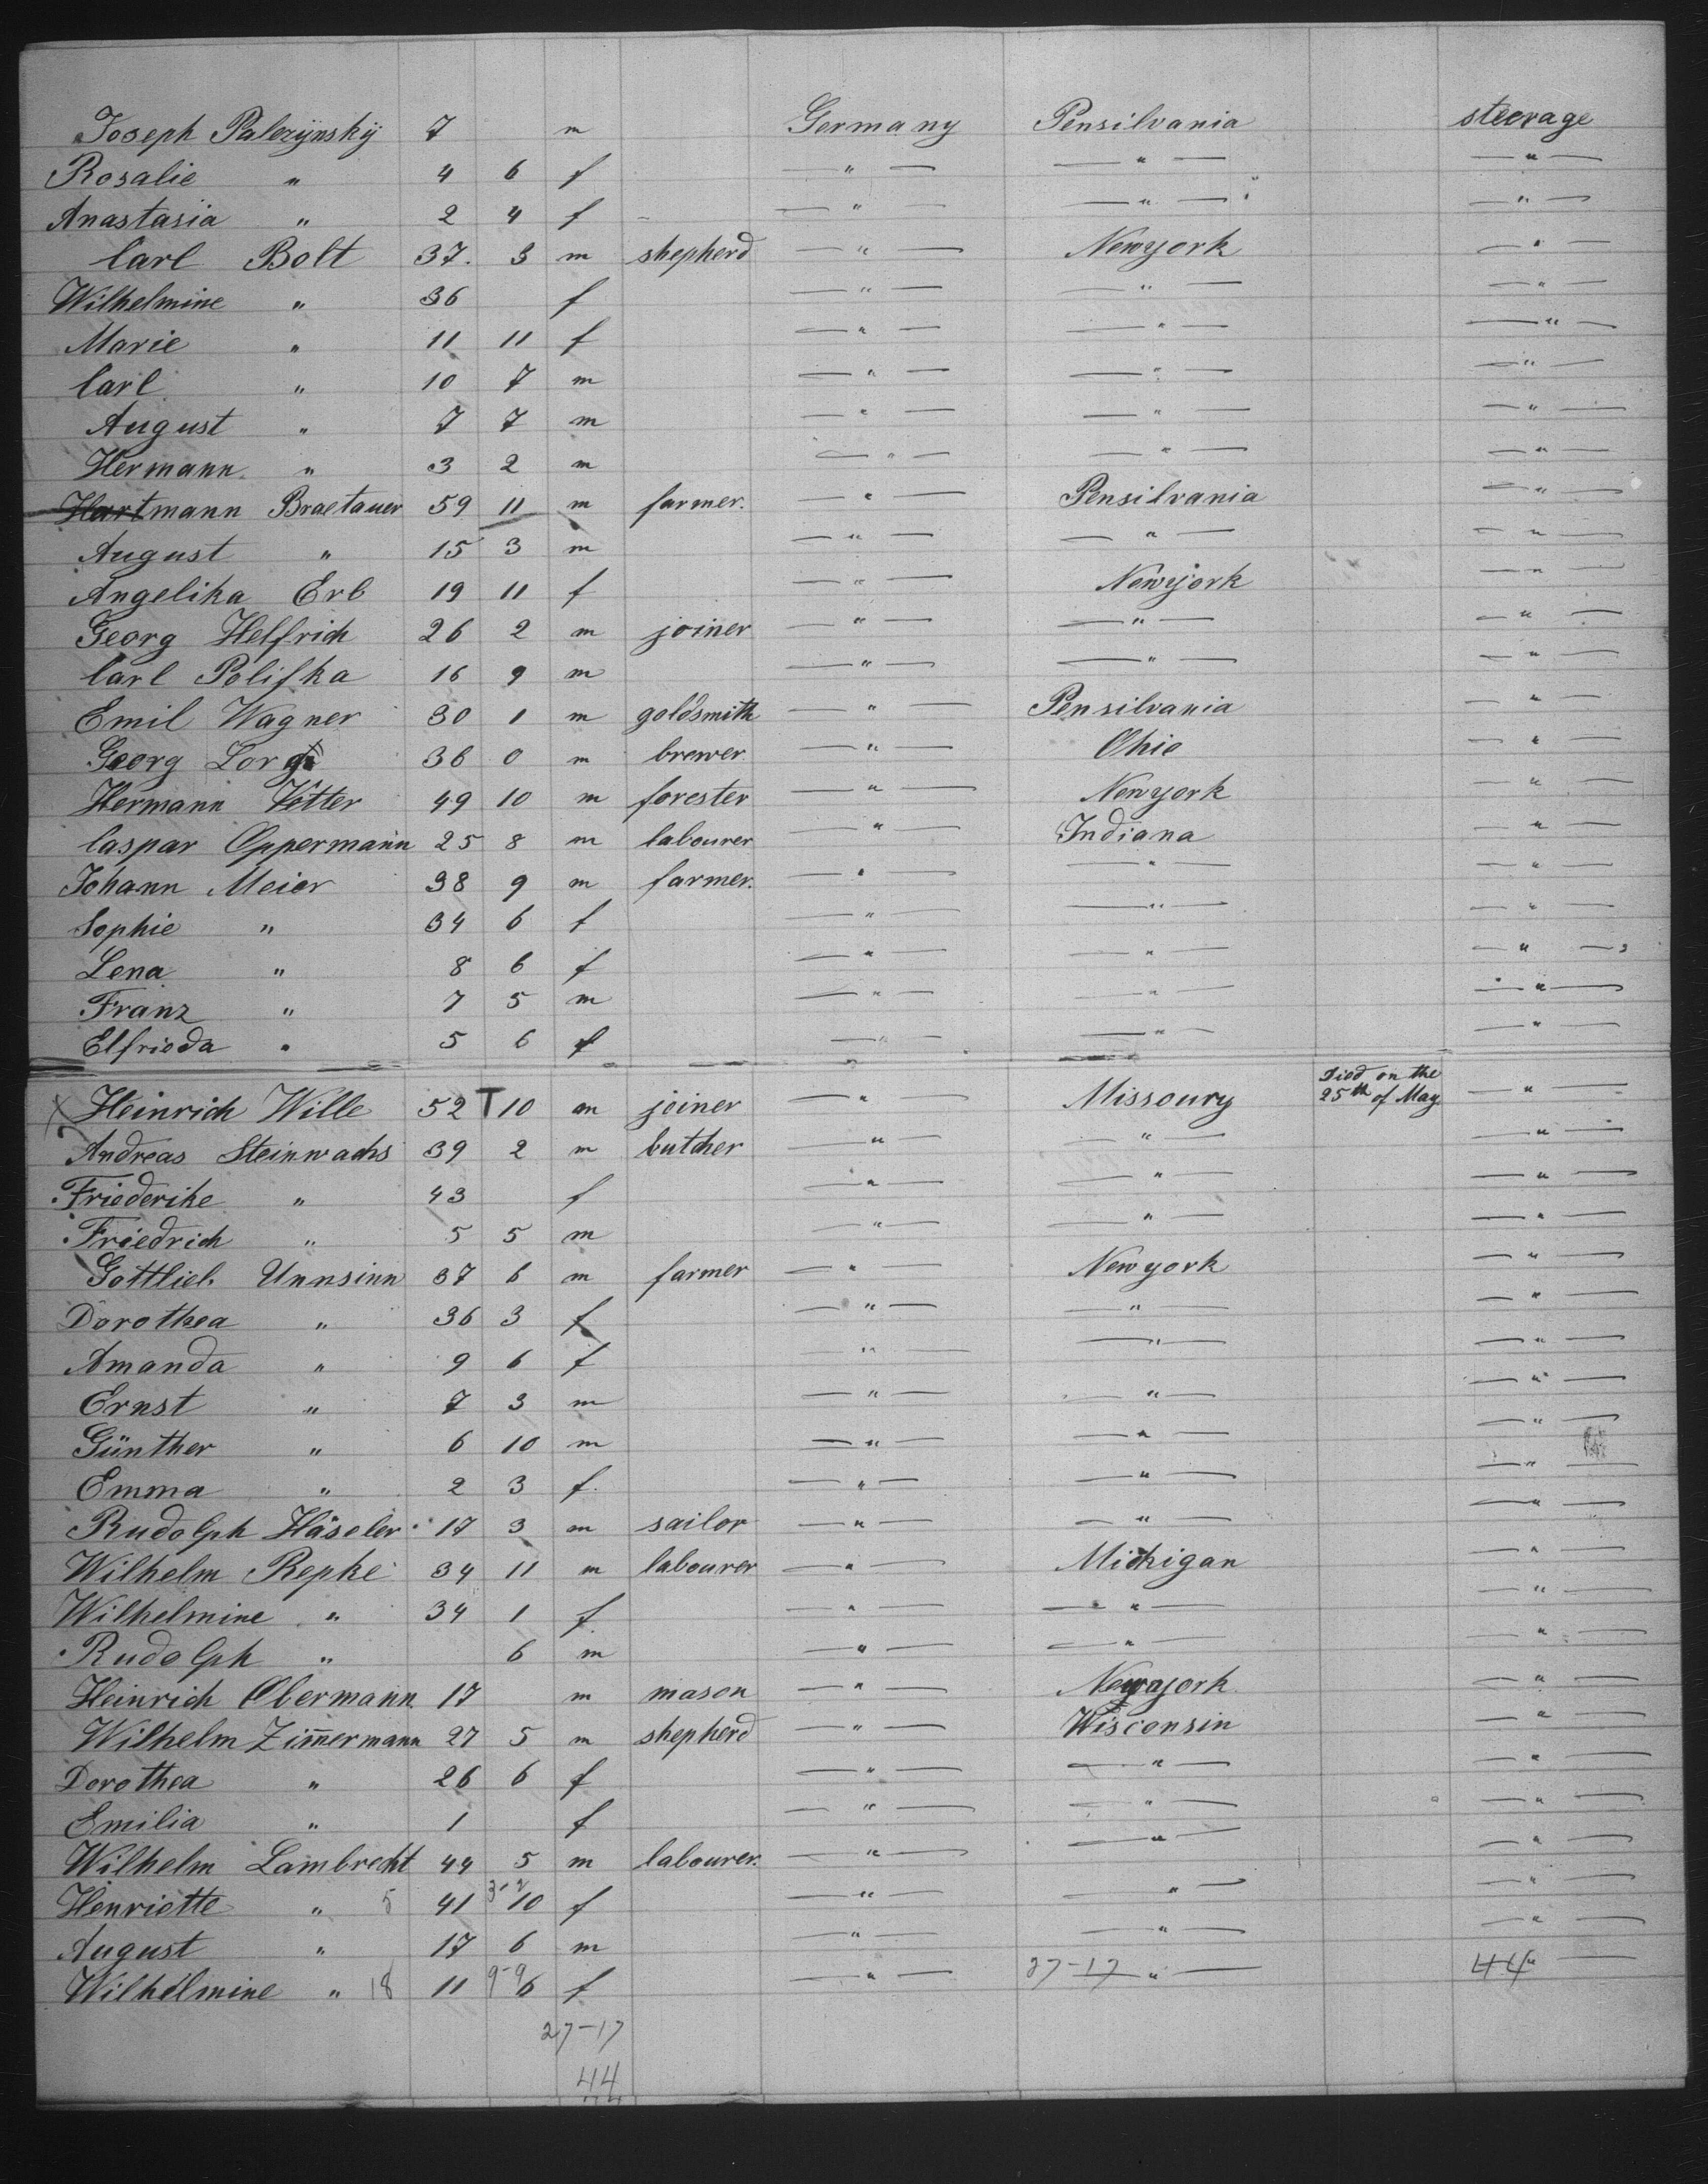 Joseph Palezÿnskÿ 7 m Germany Pensilvania steerage
Rosalie " 4 6 f " " "
Anastasia " 2 4 f " " "
Carl Bolt 37. 3 m shepherd " Newyork "
Wilhelmine " 36 f " " "
Marie " 11 11 f " " "
Carl " 10 7 m " " "
August " 7 7 m " " "
Hermann " 3 2 m " " "
Hartmann Braetauer 59 11 m farmer. " Pensilvania "
August " 15 3 m " " "
Angelika Erb 19 11 f " Newyork "
Georg Helfrich 26 2 m joiner " " "
Carl Polifka 16 9 m " " "
Emil Wagner 30 1 m goldsmith " Pensilvania "
Georg 36 0 m brewer. " Ohio "
Hermann Vetter 49 10 m forester " Newyork "
Caspar Oppermann 25 8 m labourer " Indiana "
Johann Meier 38 9 m farmer. " " "
Sophie " 34 6 f " " "
Lena " 8 6 f " " "
Franz " 7 5 m " " "
Elfrieda " 5 6 f " " "
Heinrich Wille 52 T 10 m joiner " Missoury Died on the 25th of May "
Andreas Steinwachs 39 2 m butcher " " "
Friederike " 43 f " " "
Friedrich " 5 5 m " " "
Gottlieb Unnsinn 37 6 m farmer " Newyork "
Dorothea " 36 3 f " " "
Amanda " 9 6 f " " "
Ernst " 7 3 m " " "
Günther " 6 10 m " " "
Emma " 2 3 f. " " "
Rudolph Häseler 17 3 m sailor " " "
Wilhelm Repke 34 11 m labourer " Michigan "
Wilhelmine " 34 1 f " " "
Rudolph " 6 m " " "
Heinrich Obermann 17 m mason " Newyork "
Wilhelm Zim̅ermann 27 5 m shepherd " Wisconsin "
Dorothea " 26 6 f " " "
Emilia " 1 f " " "
Wilhelm Lambrecht 44 5 m labourer. " " "
Henriette " 5 41 3-2 10 f " " "
August " 17 6 m " " "
Wilhelmine " 18 11 9-9 6 f " 27-17 " 44 "
27-17
44